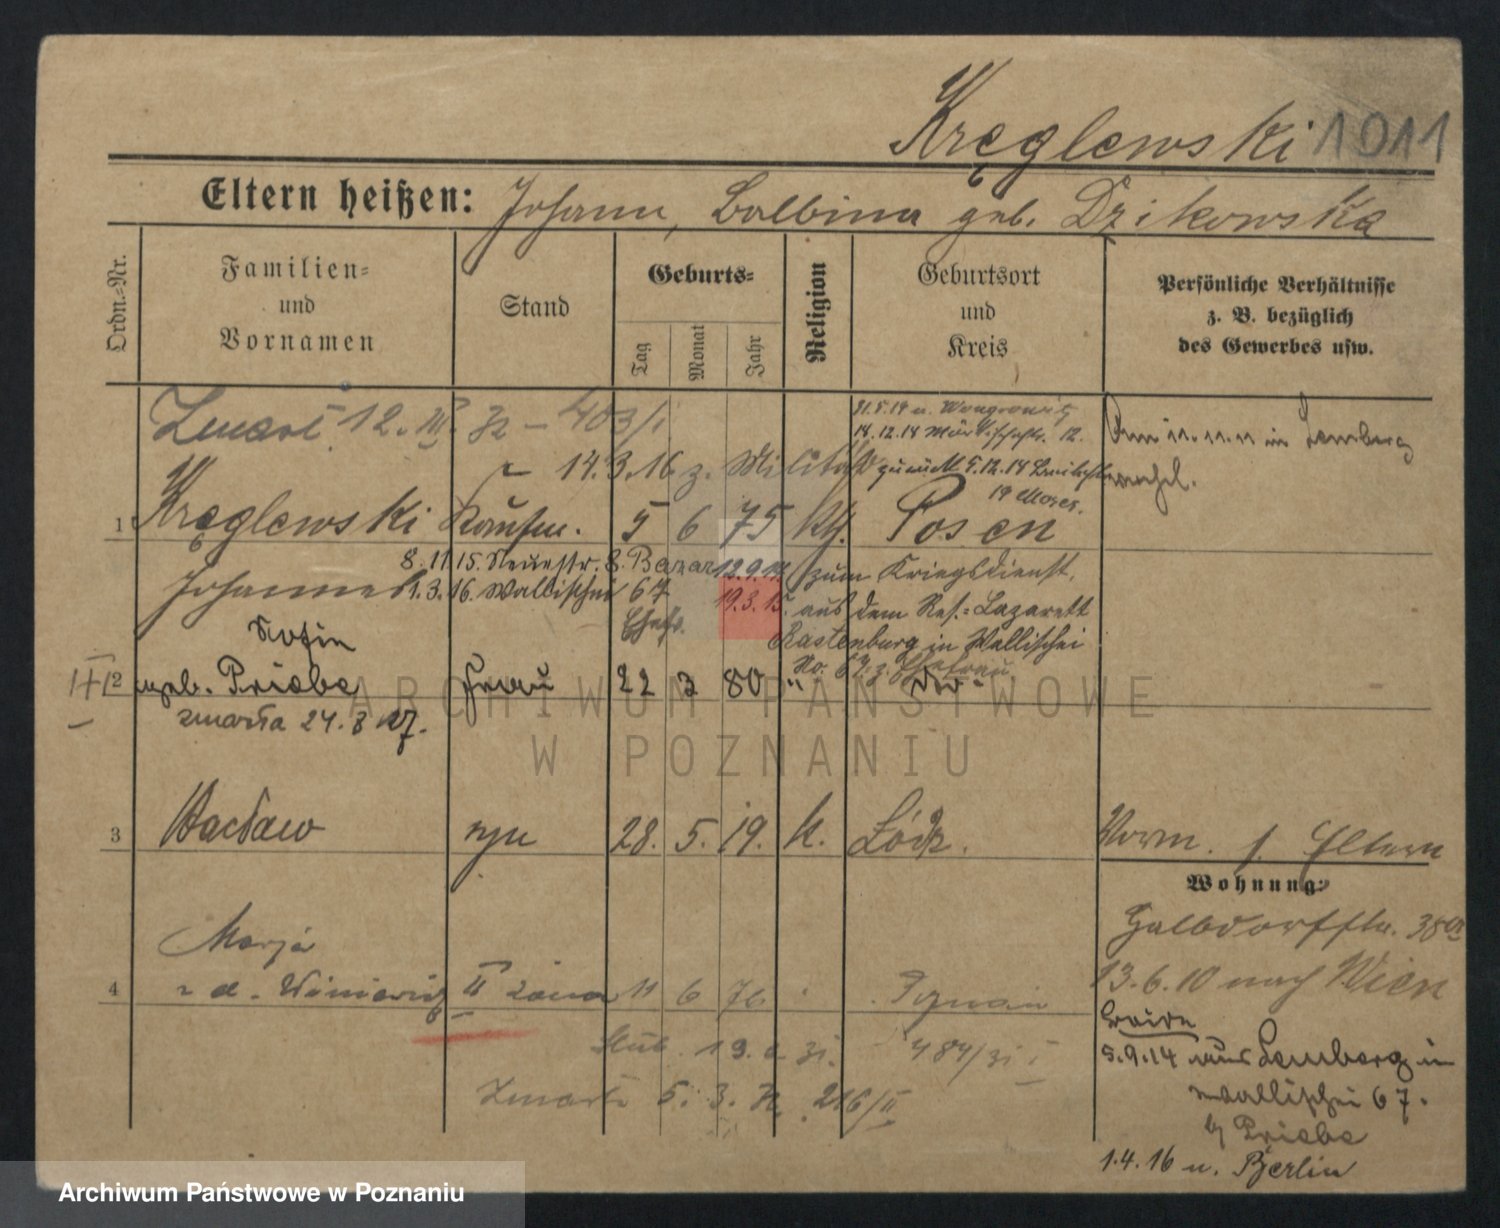 Kręglewski 1011
Eltern heißen: Johann, Balbina geb. Dzikowska
Ordn.-Nr.
Familien=
und
Vornamen
Stand
Geburts=
Tag
Monat
Jahr
Religion
Geburtsort
und
Kreis
Persönliche Verhältnisse
z. B. bezüglich
des Gewerbes usw.
Zmarł 12. III. 32 – 403/I
21.5.14 n. Wongrowitz
14.12.14 12.
Am 11.11.11 in Lemberg
14.3.16 z. Militär
zurück 5.12.14
1 Kręglewski Kaufm. 5 6 75 kth. Posen
8.11.15 Neuestr. 8. Bazar 12.9.14 zum Kriegsdienst.
Johannes 1.3.16. Wallischei 67 19.3.15. aus dem Res.=Lazarett
Ehefr. Rastenburg in Wallischei
No. 67 z. Ehefrau
2 geb. Priebe Frau 22 3 80 " do
zmarła 24.8.27.
3 Wacław syn 28. 5. 19. k. Łódź.
Vorm. s. Eltern
Wohnung:
Halbdorfstr. 38
Marja
4 z d. Winiewicz II żona 11 6 76 Poznań
13.6.10 nach Wien
ślub 19. 31. 484/31 I
5.9.14 aus Lemberg in
Wallischei 67.
Zmarł 5. 3. 32 216/II
b/ Priebe
1.4.16 n. Berlin
ARCHIWUM PAŃSTWOWE
W POZNANIU
Archiwum Państwowe w Poznaniu